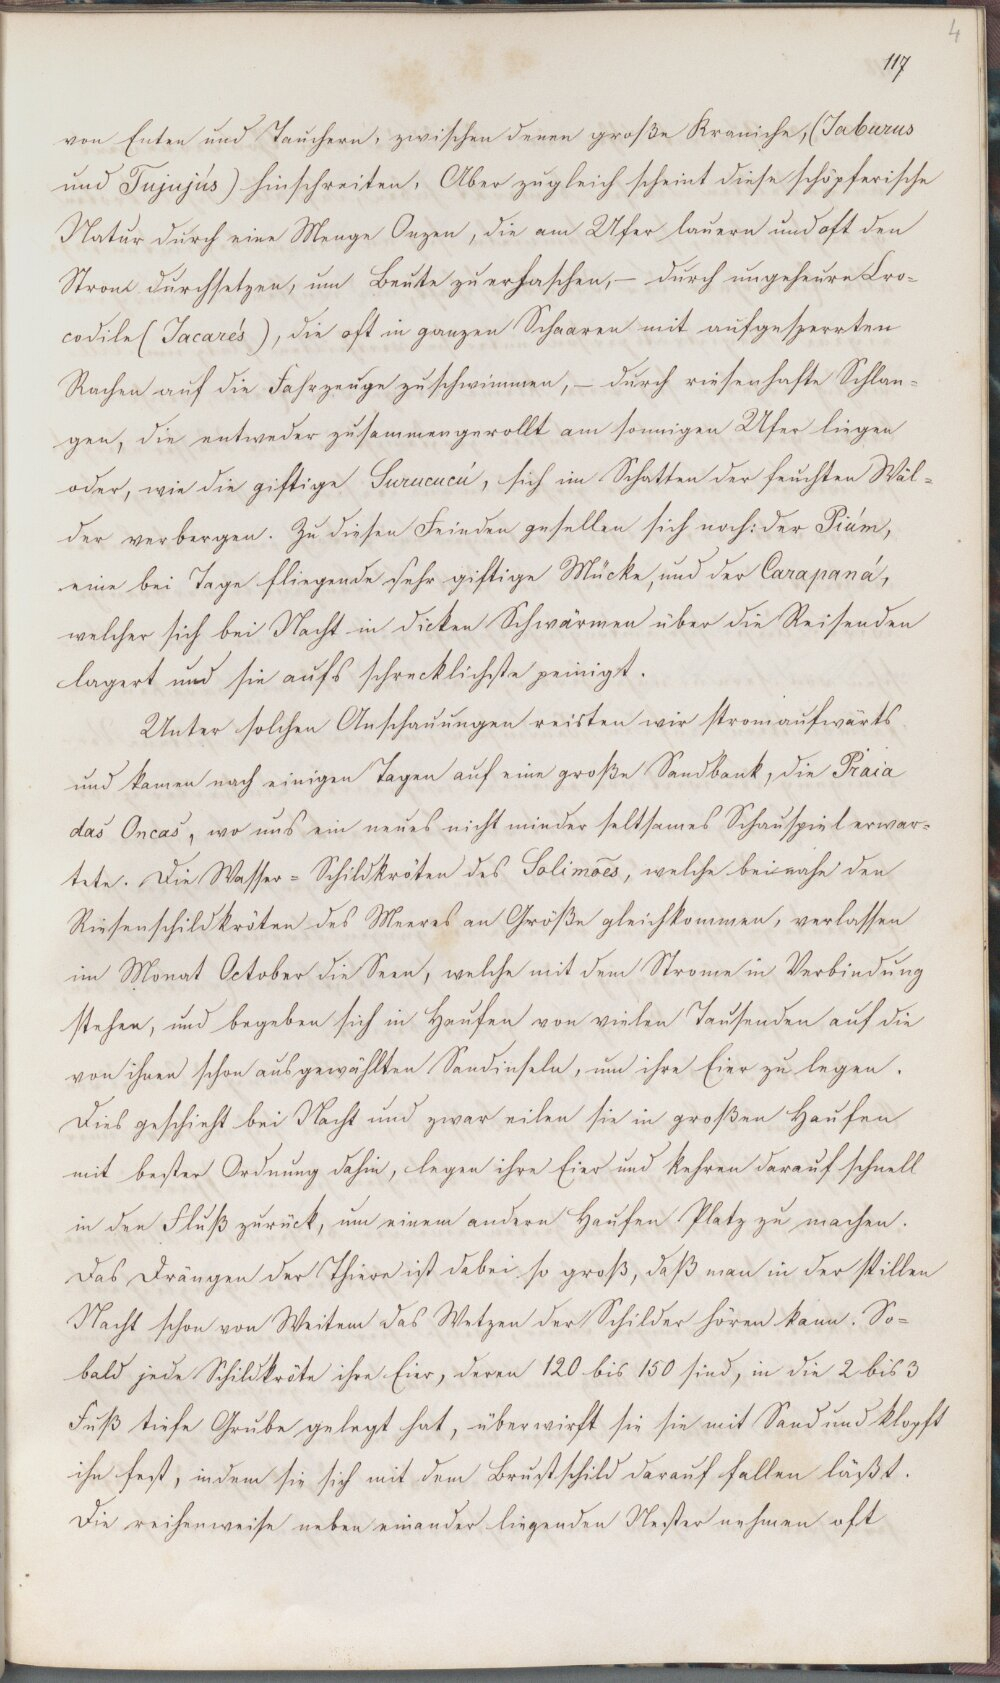 4
117
von Enten und Tauchern, zwischen denen große Kraniche, (Jaburus
und Tujujús) hinschreiten. Aber zugleich scheint diese schöpferische
Natur durch eine Menge Onzen, die am Ufer lauern und oft den
Strom durchsetzen, um Beute zu erhaschen, – durch ungeheure Cro-
codile (Jacarés), die oft in ganzen Schaaren mit aufgesperrten
Rachen auf die Fahrzeuge zuschwimmen, – durch riesenhafte Schlan-
gen, die entweder zusammengerollt am sonnigen Ufer liegen
oder, wie die giftige Surucucú, sich im Schatten der feuchten Wäl-
der verbergen. Zu diesen Feinden gesellen sich noch: der Piúm,
eine bei Tage fliegende sehr giftige Mücke, und der Carapaná,
welcher sich bei Nacht in dicken Schwärmen über die Reisenden
lagert und sie aufs schrecklichste peinigt.
Unter solchen Anschauungen reisten wir stromaufwärts
und kamen nach einigen Tagen auf eine große Sandbank, die Praia
das Oncas, wo uns ein neues nicht minder seltsames Schauspiel erwar-
tete. Die Wasser-Schildkröten des Solimoẽs, welche beinahe den
Riesenschildkröten des Meeres an Größe gleichkommen, verlassen
im Monat October die Seen, welche mit dem Strome in Verbindung
stehen, und begeben sich in Haufen von vielen Tausenden auf die
von ihnen schon ausgewählten Sandinseln, um ihre Eier zu legen.
Dies geschieht bei Nacht und zwar eilen sie in großen Haufen
mit bester Ordnung dahin, legen ihre Eier und kehren darauf schnell
in den Fluß zurück, um einem andern Haufen Platz zu machen.
Das Drängen der Thiere ist dabei so groß, daß man in der stillen
Nacht schon von Weitem das Wetzen der Schilder hören kann. So-
bald jede Schildkröte ihre Eier, deren 120 bis 150 sind, in die 2 bis 3
Fuß tiefe Grube gelegt hat, überwirft sie sie mit Sand und klopft
ihn fest, indem sie sich mit dem Brustschild darauf fallen läßt.
Die reihenweise neben einander liegenden Nester nehmen oft